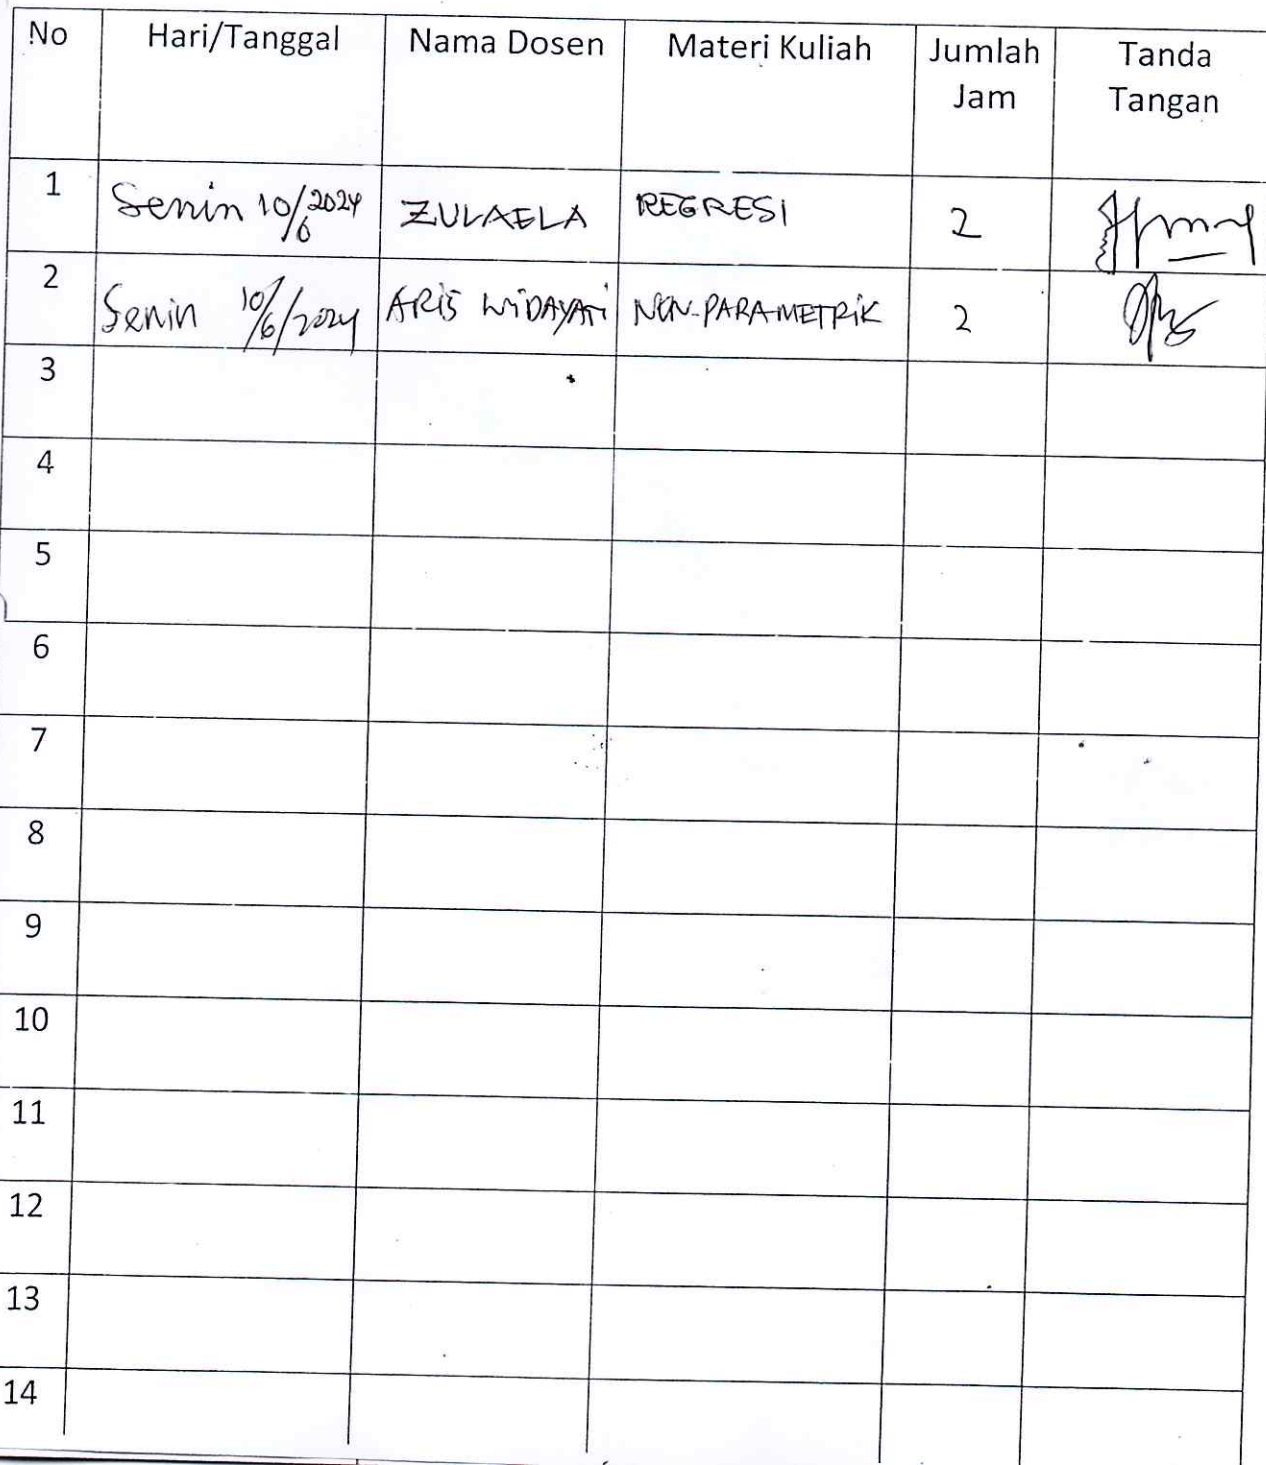 No Hari/Tanggal Nama Dosen Materi Kuliah Jumlah Jam Tanda Tangan
1 Senin 10/6 2024 ZULAELA REGRESI 2
2 Senin 10/6/2024 ARIS WIDAYATI NON-PARAMETRIK 2
3
4
5
6
7
8
9
10
11
12
13
14